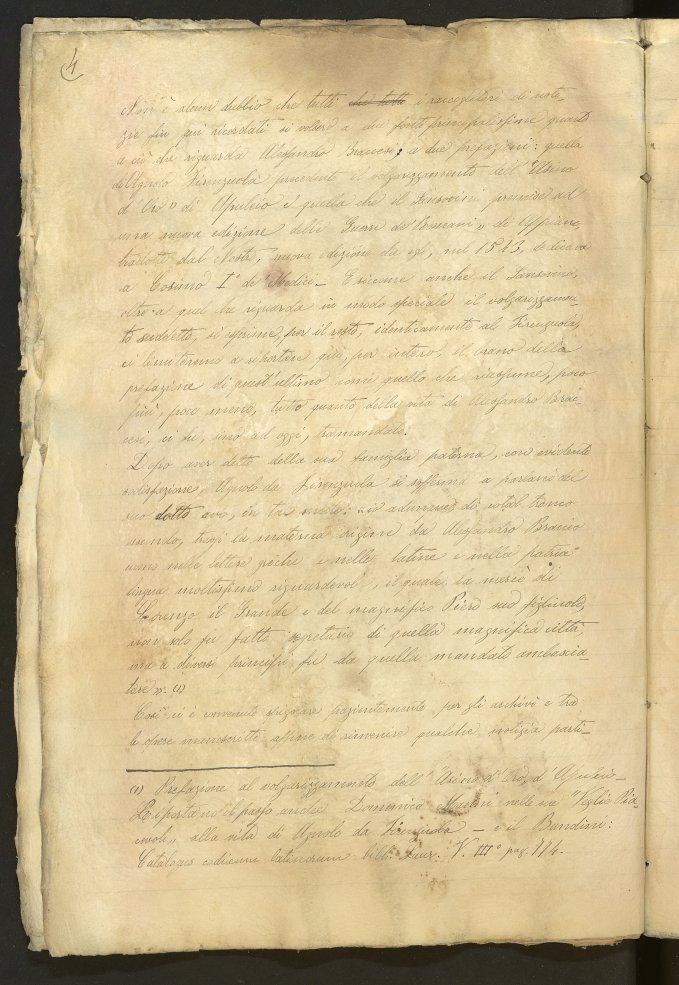 4
Non è alcun dubbio che tutti che tutti i raccoglitori di noti-
zie fin qui ricordati si volsero a due fonti principalissime quanto
a ciò che riguarda Alessandro Braccesi; a due prefazioni: quella
di Agnolo Firenzuola precedente il volgarizzamento dell'"Asino
d'Oro" di Apuleio e quella che il Sansovini premise ad
una nuova edizione delle Guerre de' Romani" di Appiano,
tradotte dal Nostro, nuova edizione da egli, nel 1543, dedicava
a Cosimo I° de' Medici — E siccome anche il Sansovino,
oltre a quel che riguarda in modo speciale il volgarizzamen-
to suddetto, si esprime, per il resto, identicamente al Firenzuola,
ci limiteremo a riportare qui, per intero, il brano della
prefazione di quest'ultimo come quello che riassume, poco
più, poco meno, tutto quanto della vita di Alessandro Brac-
cesi, ci fu, sino ad oggi, tramandato.
Dopo aver detto della sua famiglia paterna, con evidente
sodisfazione, Agnolo da Firenzuola si sofferma a parlare del
suo dotto avo, in tal modo: io adunque di cotal tronco
uscendo, trassi la materna origine da Alessandro Braccio
uomo nelle lettere greche e nelle latine e nella patria
lingua moltissimo riguardevole, il quale, la mercè di
Lorenzo il Grande e del magnifico Piero suo figliuolo,
non solo fu fatto segretario di quella magnifica città,
ma a diversi principi fu da quella mandato ambascia-
tore". (1)
Così ci è convenuto frugare pazientemente per gli archivi e tra
le opere manoscritte affine di rinvenire qualche notizia parti-
(1) Prefazione al volgarizzamento dell'"Asino d'Oro, d'Apuleio —
Riportano il passo anche Domenico Manni nelle sue "Veglie Pia-
cevoli", alla vita di Agnolo da Firenzuola — e il Bandini:
Catalogus codicum latinorum bibl. Laur. V. III° pag. 114.